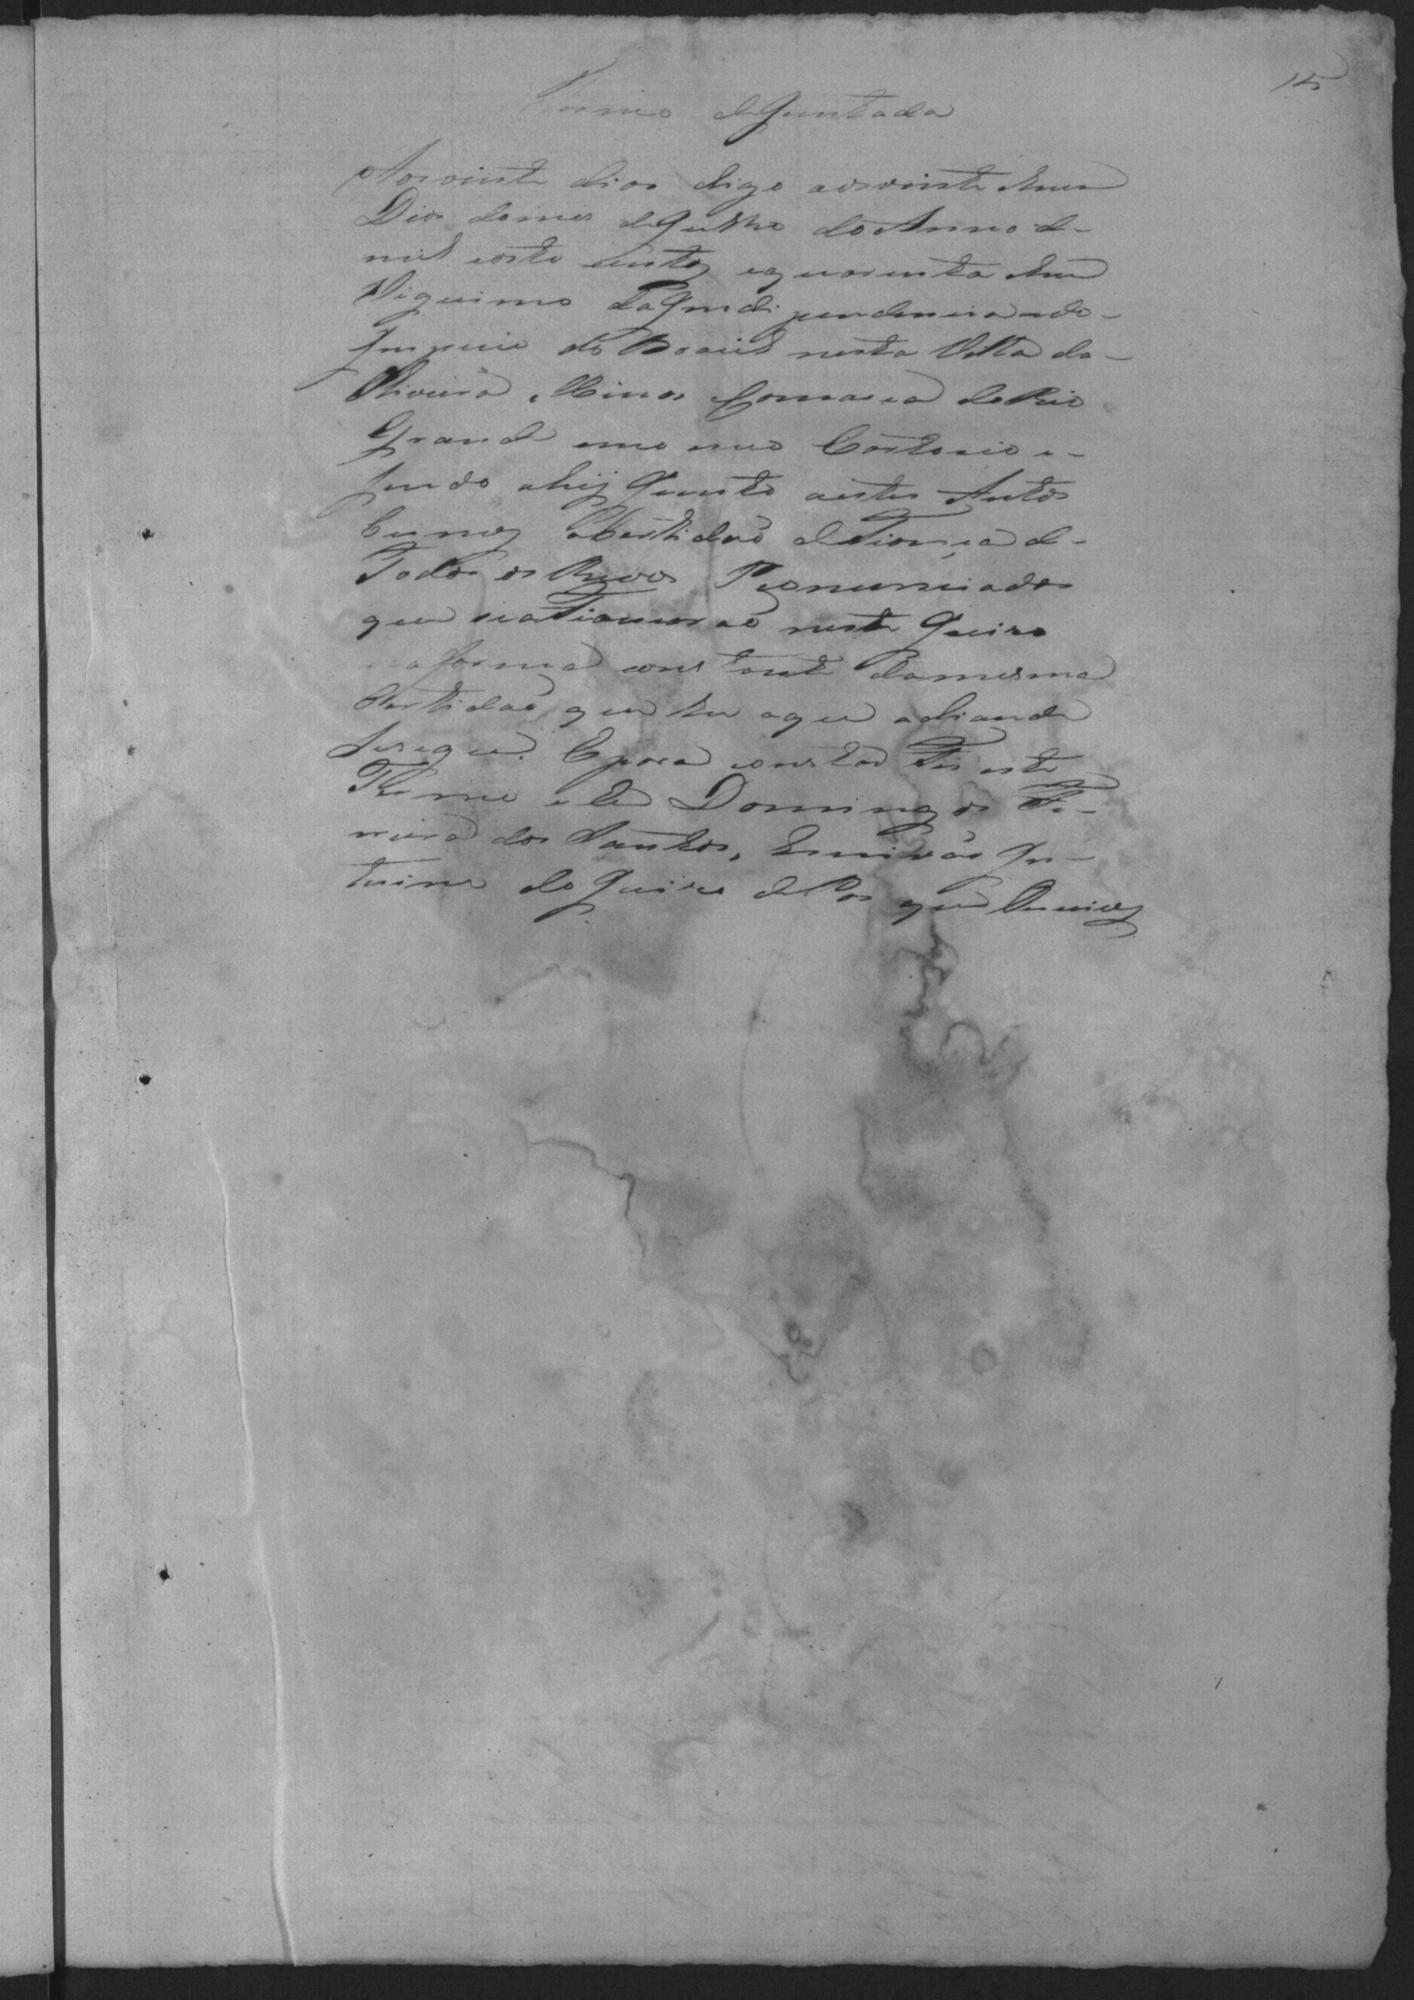 15
Termo de Juntada
Aos vinte dias digo aos vinte hum
Dias do mes de Julho do Anno de
mil oito centos e quarenta hum
Vigessimo da Independencia e do
Imperio do Brasil nesta Villa da
Oliveira, Minas Comarca do Rio
Grande em o meo Cartorio e
sendo ahij Junto aestes Autos
Certidão de Fiança de
Todos os Reeos Pronunciados
que neste Juizo
na forma constante da mesma
Certidão que he aque adiande
Sesegue. E para constar Fis este
Termo eEu Domingos Fe-
rreira dos Santos, Escrivão In-
terino do Juizo de Pas que Escrevj